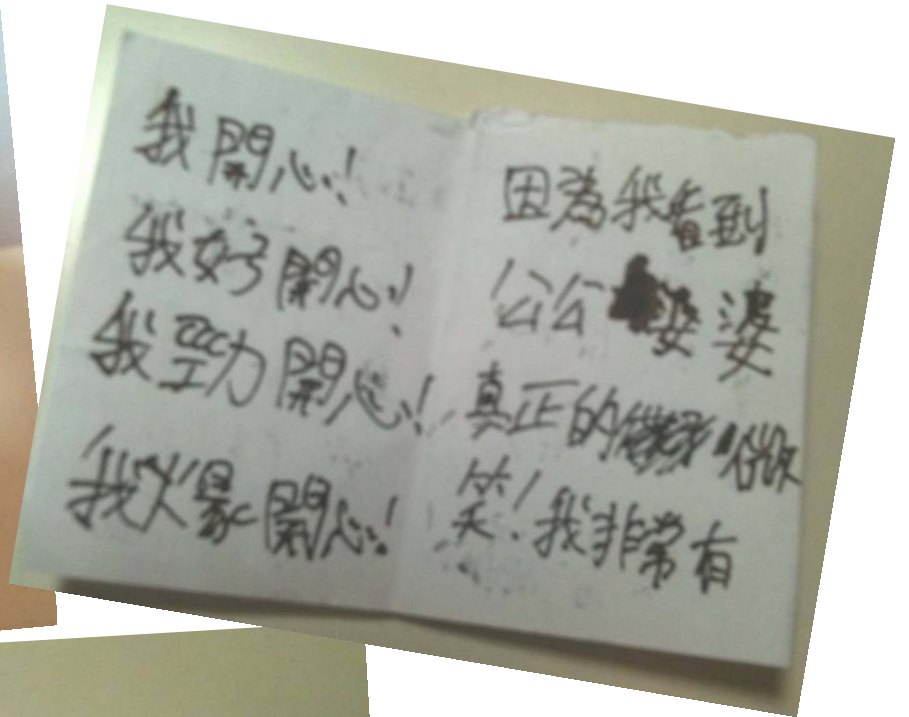 我開心!
我好開心!
我勁開心!
我火爆開心!
因為我看到
公公婆婆
真正的微
笑!我非常有